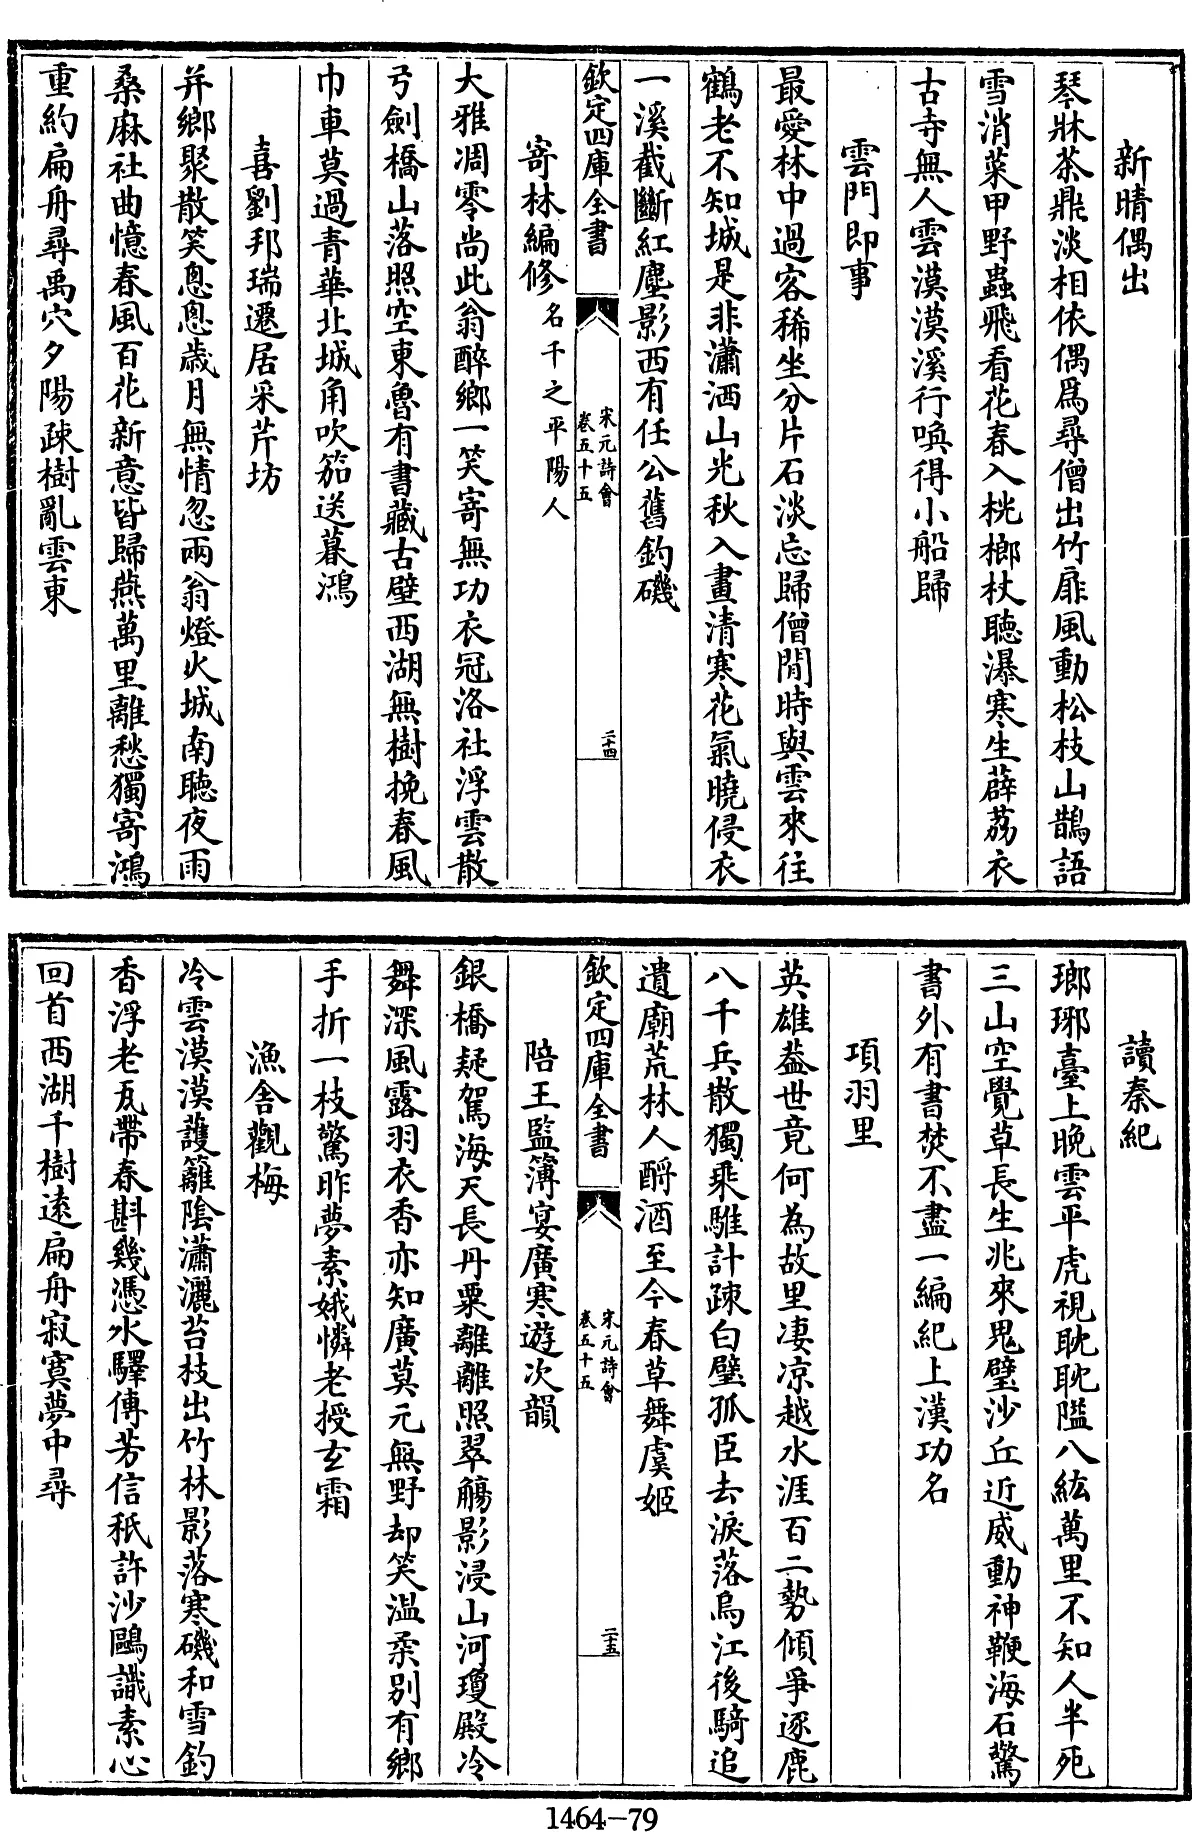 新晴偶出
琴牀茶鼎淡相依偶爲尋僧出竹扉風動松枝山鵲語
雪消菜甲野蟲飛看花春入桄榔杖聽瀑寒生薜荔衣
古寺無人雲漠漠溪行喚得小船歸
雲門即事
最愛林中過客稀坐分片石淡忘歸僧閒時與雲來往
鶴老不知城是非瀟洒山光秋入畫清寒花氣曉侵衣
一溪截斷紅塵影西有任公舊釣磯
欽定四庫全書
宋元詩會
卷五十五
二十四
寄林編修名千之平陽人
大雅凋零尚此翁醉鄉一笑寄無功衣冠洛社浮雲散
弓劍橋山落照空東魯有書藏古壁西湖無樹挽春風
巾車莫過青華北城角吹笳送暮鴻
喜劉邦瑞遷居采芹坊
并鄉聚散笑悤悤歲月無情忽兩翁燈火城南聽夜雨
桑麻社曲憶春風百花新意皆歸燕萬里離愁獨寄鴻
重約扁舟尋禹穴夕陽疎樹亂雲東
讀秦紀
瑯琊臺上晚雲平虎視耽耽隘八紘萬里不知人半死
三山空覺草長生兆來鬼璧沙丘近威動神鞭海石驚
書外有書焚不盡一編紀上漢功名
項羽里
英雄葢世竟何為故里凄凉越水涯百二勢傾爭逐鹿
八千兵散獨乘騅計疎白璧孤臣去淚落烏江後騎追
遺廟荒林人酹酒至今春草舞虞姬
欽定四庫全書
宋元詩會
卷五十五
二十五
陪王監簿宴廣寒遊次韻
銀橋疑駕海天長丹粟離離照翠觴影浸山河瓊殿冷
舞深風露羽衣香亦知廣莫元無野却笑温柔别有鄉
手折一枝驚昨夢素娥憐老授玄霜
漁舍觀梅
冷雲漠漠護籬陰瀟灑苔枝出竹林影落寒磯和雪釣
香浮老瓦帶春斟幾憑水驛傳芳信秖許沙鷗識素心
回首西湖千樹遠扁舟寂寞夢中尋
1464-79